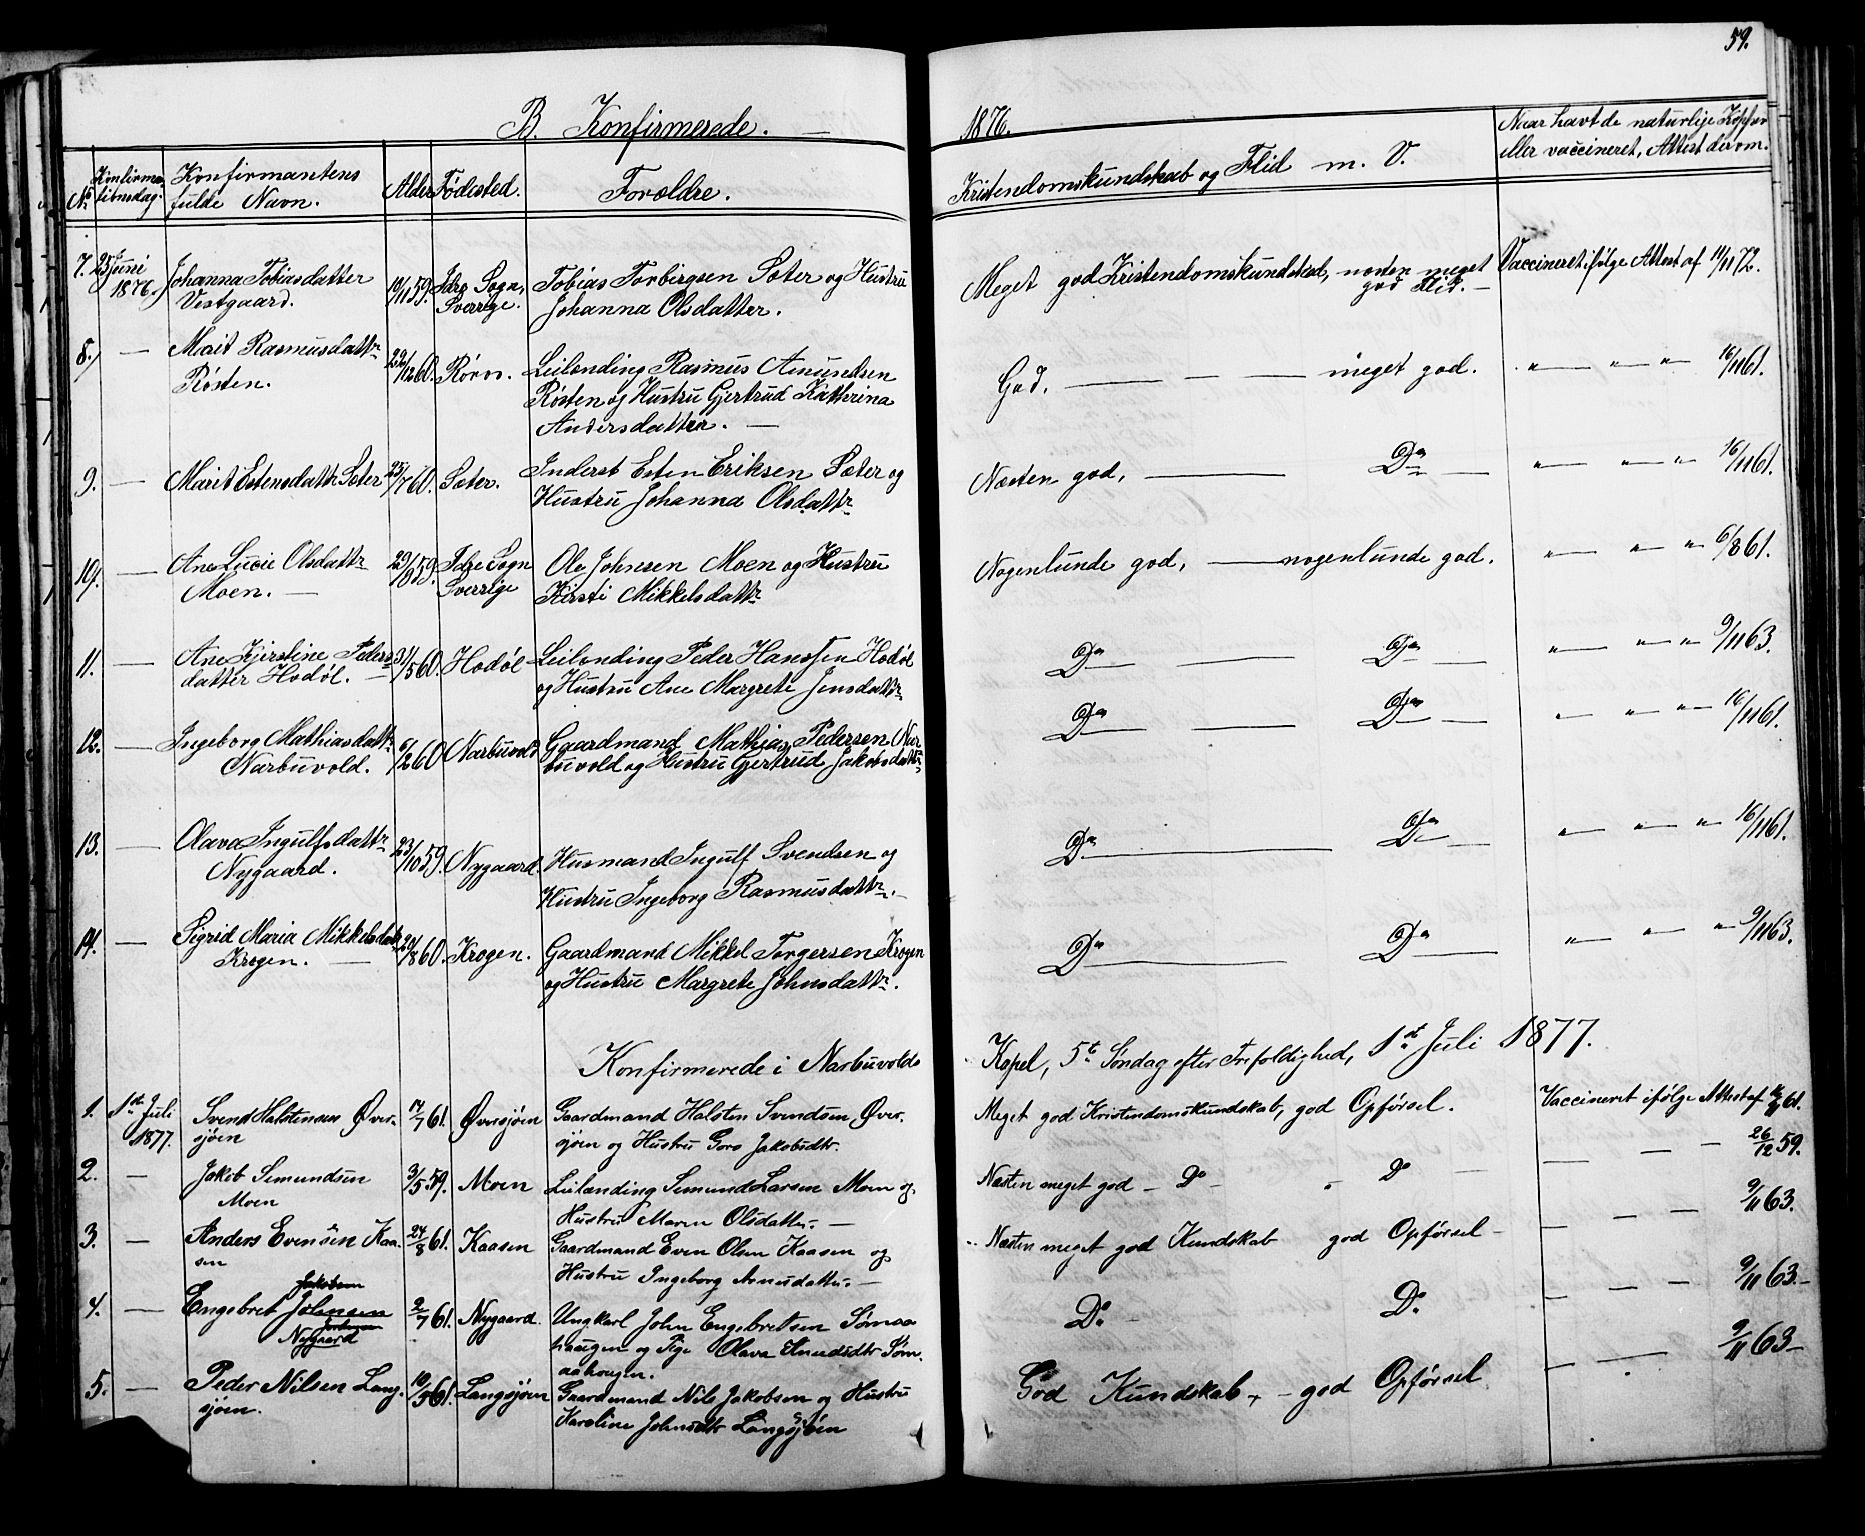 59.
B. Konfirmerede. — 1876.
No Konfirma-
tionsdag.
Konfirmantens
fulde Navn.
Alder
Fødested.
Forældre.
Kristendomskundskab og Flid m. V.
Naar havt de naturlige Kopper
eller vaccineret, Attest derom.
7. 25 Juni
1876.
Johanna Tobiasdatter
Vestgaard.
10/1 59.
Idre Sogn,
Sverrige.
Tobias Torbergsen Sæter og Hustru
Johanna Olsdatter.
Meget god Kristendomskundskab, næsten meget
god Flid. —
Vaccineret ifølge Attest af 11/11 72.
8. —
Marit Rasmusdattr
Røsten.
29/12 60.
Røros.
Leilænding Rasmus Amundsen
Røsten og Hustru Gjertrud Katherina
Andersdatter. —
God. — — meget god.
" — " — " 16/11 61.
9. —
Marit Estensdattr Sæter
25/7 60.
Sæter.
Inderst Esten Eriksen Sæter og
Hustru Johanna Olsdattr
Næsten god, — Do —
" — " — " 16/11 61.
10. —
Ane Lucie Olsdattr
Moen. —
29/8 59.
Idre Sogn
Sverrige
Ole Johnsen Moen og Hustru
Kirsti Mikkelsdattr
Nogenlunde god, — nogenlunde god.
" — " — " 6/8 61.
11. —
Ane Kjirstine Peders
datter Hodøl. —
31/5 60.
Hodøl
Leilænding Peder Hanssen Hodøl
og Hustru Ane Margrete Jensdattr
Do — — Do —
" — " — " 9/11 63.
12. —
Ingeborg Mathiasdattr
Narbuvold.
6/2 60
Narbuvold
Gaardmand Mathias Pedersen Nar
buvold og Hustru Gjertrud Jakobsdattr
Do — — Do —
" — " — " 16/11 61.
13. —
Olava Ingulfsdattr
Nygaard.
23/10 59.
Nygaard.
Husmand Ingulf Svendsen og
Hustru Ingeborg Rasmusdattr. —
Do — Do —
" — " — " 16/11 61.
14. —
Sigrid Maria Mikkelsdatr
Krogen. —
20/8 60.
Krogen.
Gaardmand Mikkel Torgersen Krogen
og Hustru Margrete Johnsdattr.
Do — Do —
" — " — " 9/11 63.
Konfirmerede i Narbuvolds Kapel, 5te Søndag efter Trefoldighed, 1st Juli 1877.
1. 1ste Juli
1877.
Svend Halstensen Øver-
sjøen
17/7 61.
Øversjøen
Gaardmand Halsten Svendsen Øver-
sjøen og Hustru Goro Jakobsdtr.
Meget god Kristendomskundskab, god Opførsel.
Vaccineret ifølge Attest af 61.
2. —
Jakob Semundsen
Moen
3/5 59.
Moen
Leilænding Semund Larsen Moen og
Hustru Maren Olsdatter. —
Næsten meget god — Do — " Do —
— — — 26/12 59.
3. —
Anders Evensen Kaa-
sen
24/8 61.
Kaasen
Gaardmand Even Olsen Kaasen og
Hustru Ingeborg Arnesdatter. —
Næsten meget god Kundskab god Opførsel —
— — — 9/11 63.
4. —
Jakobsen
Engebret Johnsen
Nygaard
2/7 61.
Nygaard.
Ungkarl John Engebretsen Sømaa
haugen og Pige Olava Knudsdtr Søm-
aahougen.
Do — Do
— — — 9/11 63 —
5. —
Peder Nilsen Lang-
sjøen.
10/5 61.
Langsjøen
Gaardmand Nils Jakobsen og Hustru
Karoline Johnsdtr Langsjøen
God Kundskab, — god Opførsel
— — 9/11 63 —